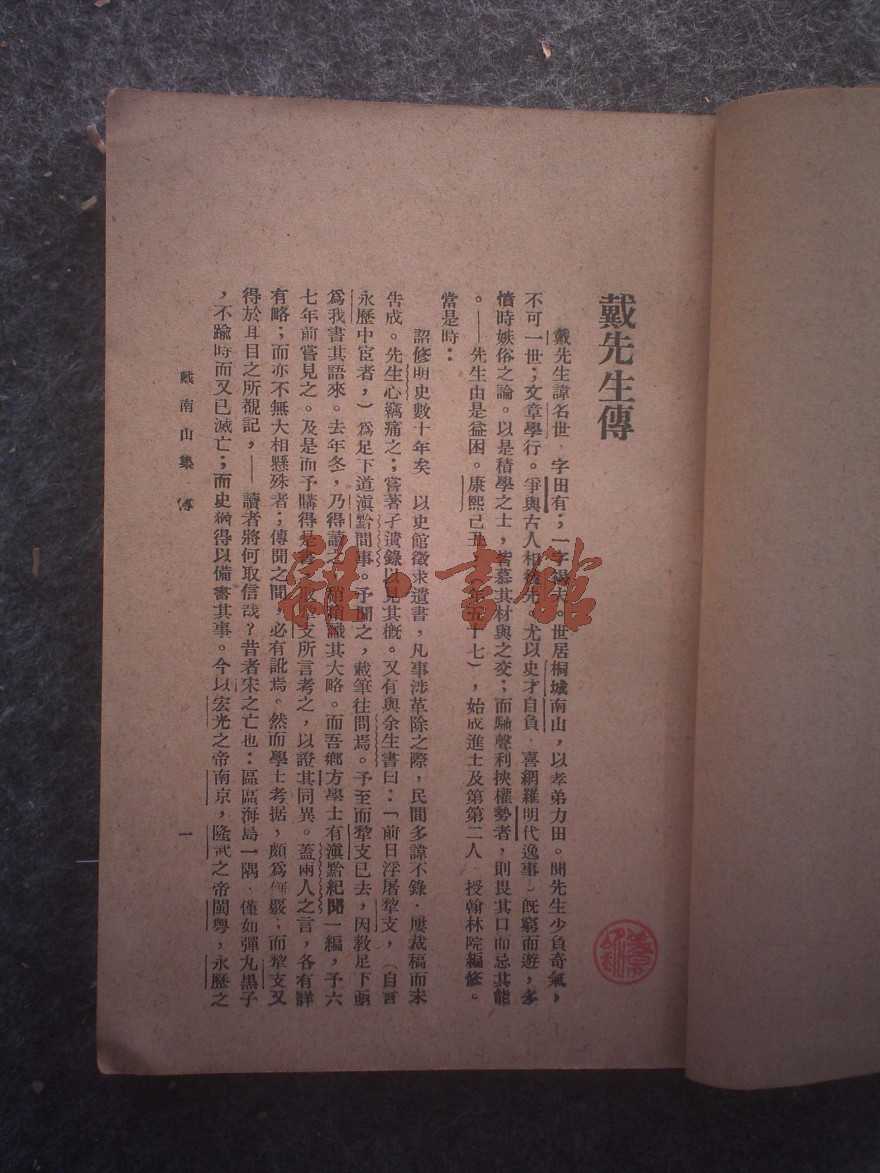 戴先生傳
戴先生諱名世，字田有；一字褐夫。世居桐城南山，以孝弟力田。聞先生少負奇氣，
不可一世；文章學行。爭與古人相後先，尤以史才自負，喜網羅明代逸事）旣窮而遊，多
憤時嫉俗之論。以是積學之士，皆慕其材與之交；而馳聲利挾權勢者，則畏其口而忌其能
。——先生由是益困。康熙己丑，年五十七），始成進士及第第二人，授翰林院編修。
當是時：
詔修明史數十年矣，以史館徵求遺書，凡事涉革除之際，民間多諱不錄，屢裁稿而未
告成。先生心竊痛之；嘗著孑遺錄以見其槪。又有與余生書曰：「前日浮屠犂支，（自言
永歷中宦者，）爲足下道滇黔間事。予聞之，載筆往問焉。予至而犂支已去，因教足下爲
爲我書其語來。去年冬，乃得讀之，稍稍識其大略。而吾鄉方學士有滇黔紀聞一編，予六
七年前嘗見之。及是而予購得是書，取犂支所言考之，以證其同異。蓋兩人之言，各有詳
有略；而亦不無大相懸殊者；傳聞之間，必有訛焉。然而學士考据，頗爲確覈；而犂支又
得於耳目之所覩記，——讀者將何取信哉？昔者宋之亡也：區區海島一隅，僅如彈丸黑子
，不踰時而又已滅亡；而史猶得以備書其事。今以宏光之帝南京，隆武之帝閩粵，永歷之
戴南山集 傳
一
書館